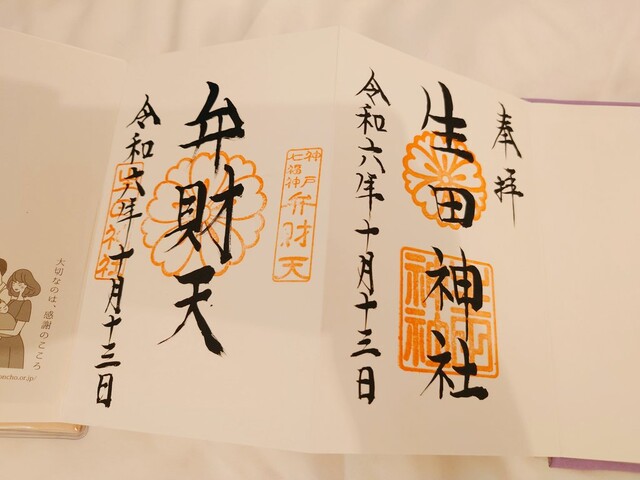 奉拝
生田神社
令和六年十月十三日
神戸
七福神
弁財天
弁財天
令和六年十月十三日
大切なのは、感謝のこころ